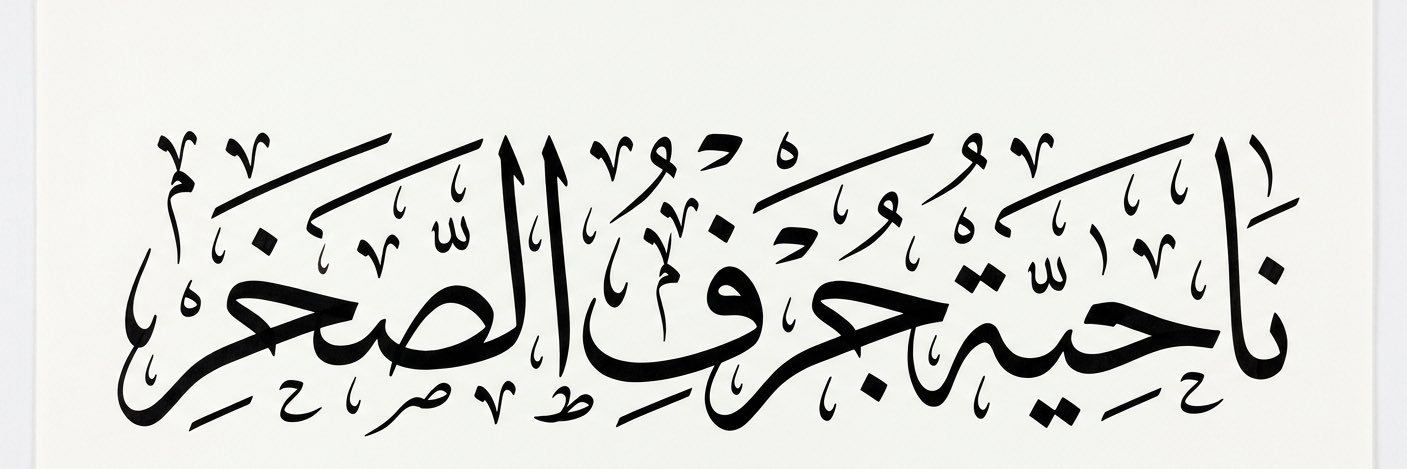 نَاحِيَّةُ جُرْفِ الصَّخَرِ